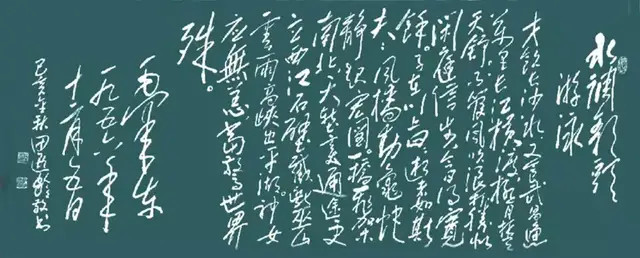 水调歌头
游泳
才饮长沙水又食武昌鱼
万里长江横渡极目楚
天舒不管风吹浪打胜似
闲庭信步今日得宽
馀子在川上曰逝者如斯
夫风樯动龟蛇
静起宏图一桥飞架
南北天堑变通途更
立西江石壁截断巫山
雲雨高峡出平湖神女
应無恙当惊世界
殊。
毛泽东
一九五六年
十二月五日
己亥年秋田